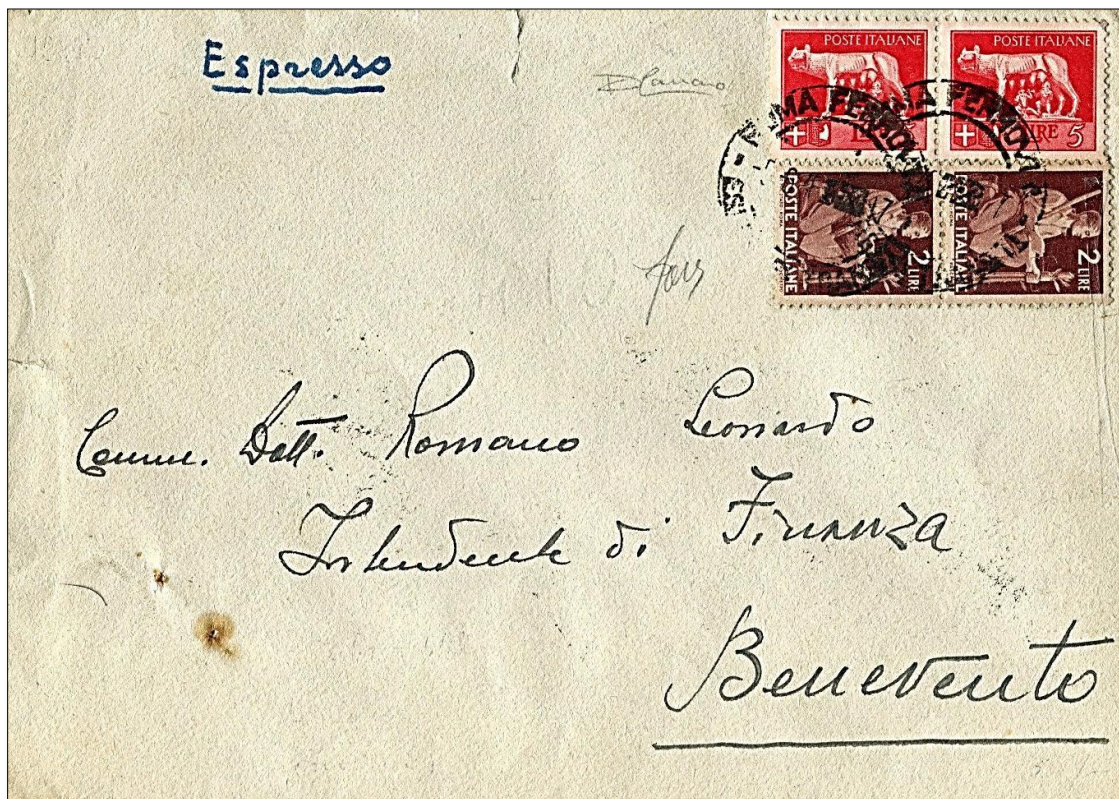 Espresso
POSTE ITALIANE POSTE ITALIANE
LIRE 5
ROMA FERROVIA
POSTE ITALIANE 2 LIRE POSTE ITALIANE 2 LIRE
Comm. Dott. Romano Leonardo
Intendente di Finanza
Benevento